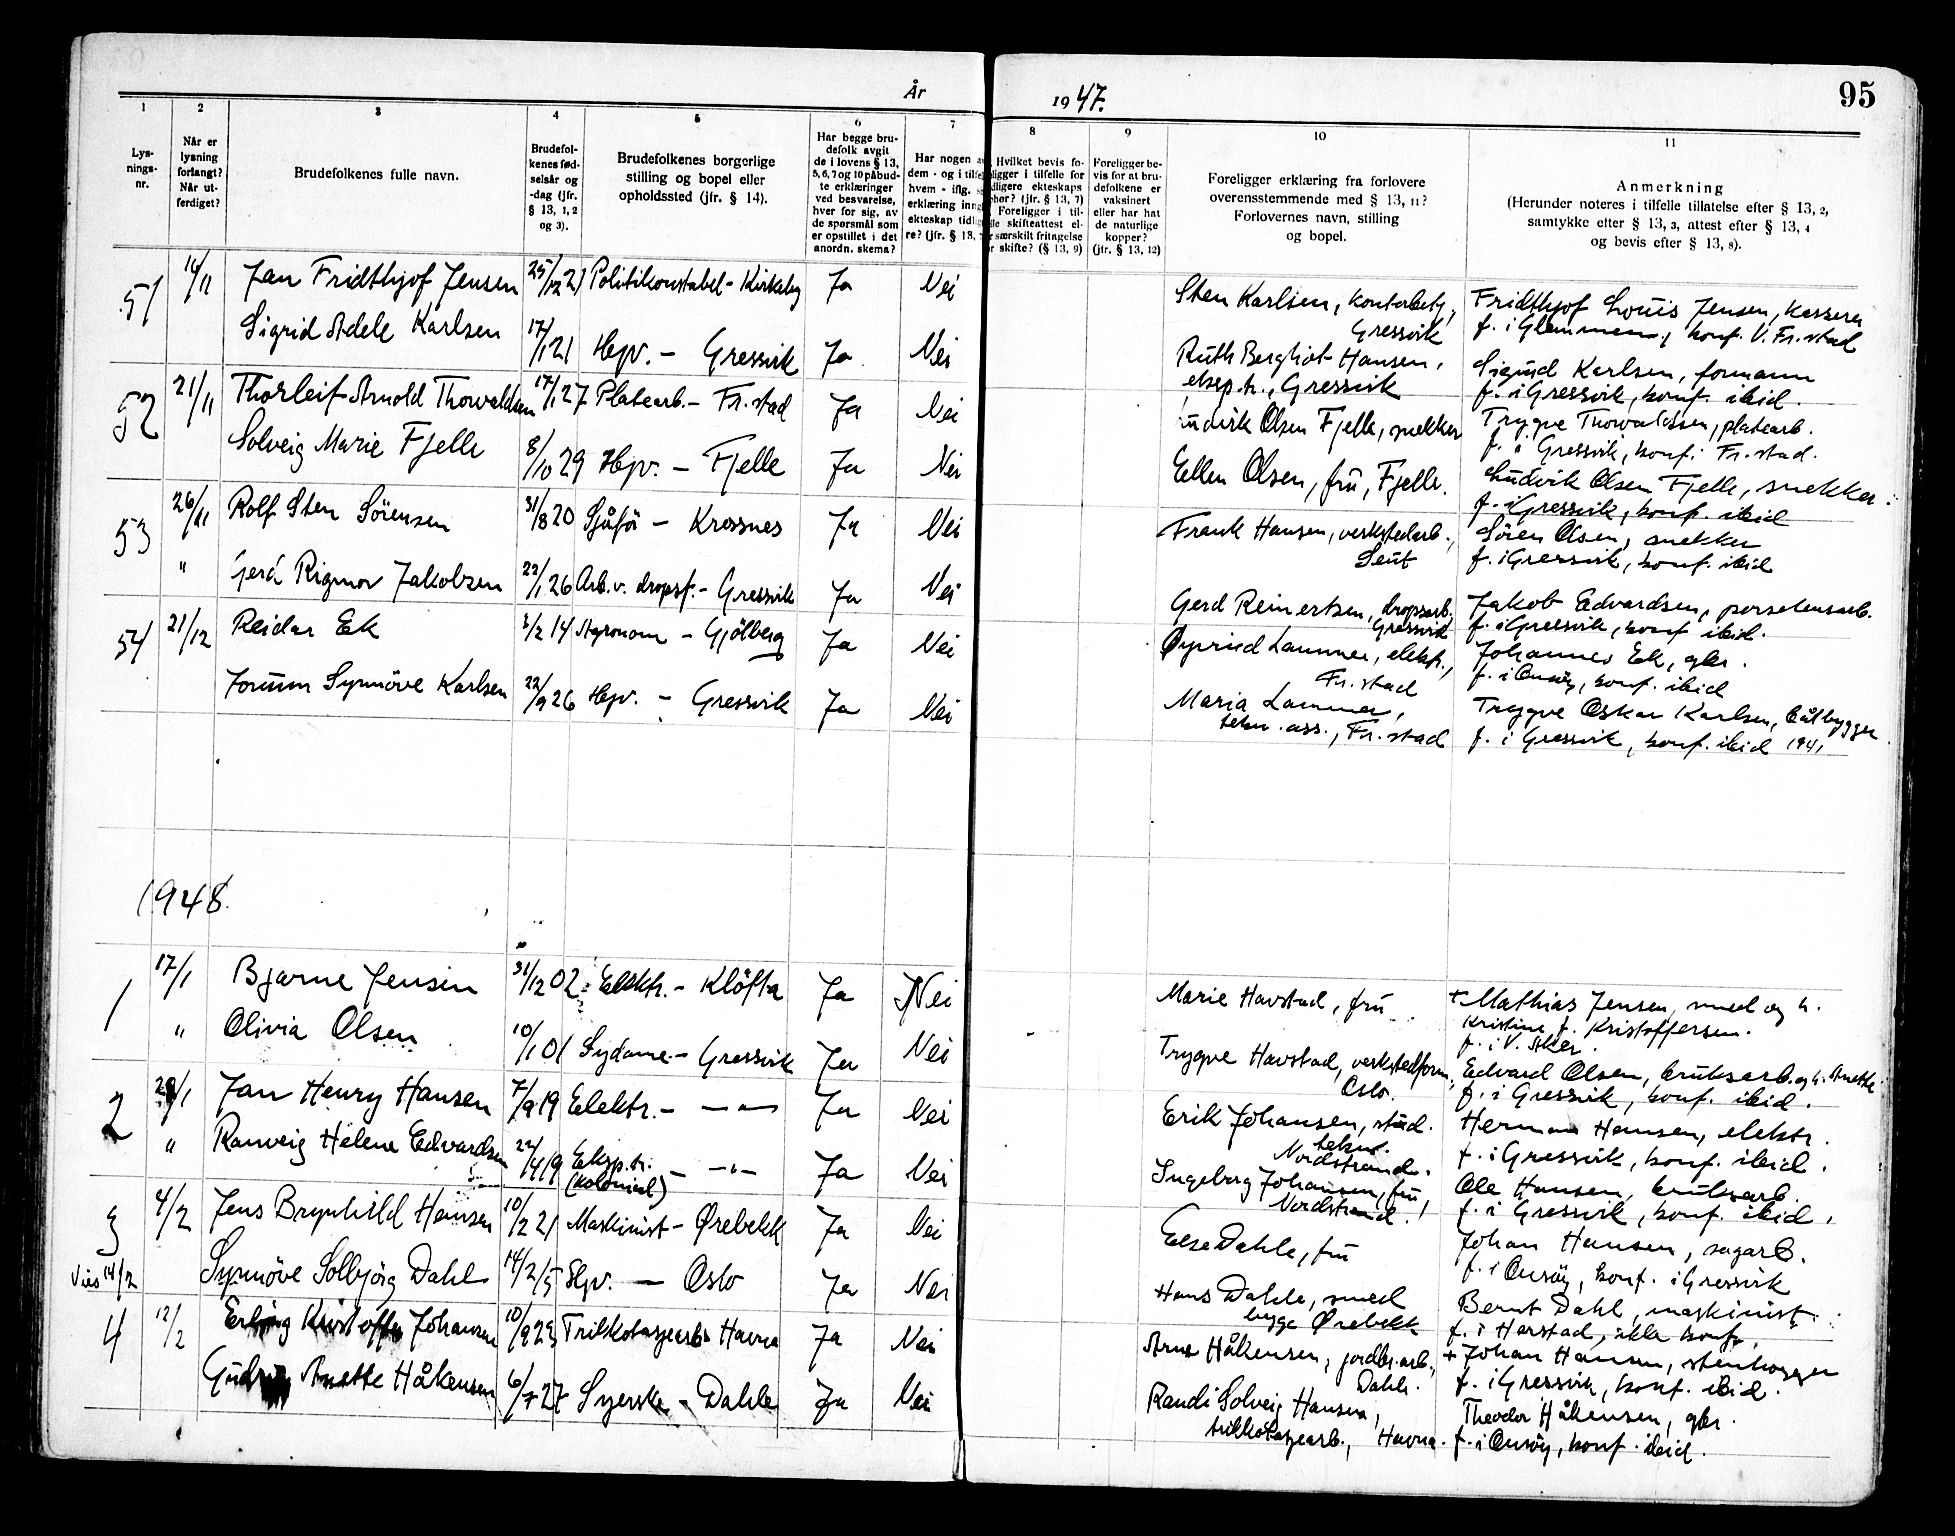 År
1947.
95
1
2
3
4
5
6
7
8
9
10
11
Lys-
nings-
nr.
Når er
lysning
forlangt?
Når ut-
ferdiget?
Brudefolkenes fulle navn.
Brudefol-
kenes fød-
selsår og
-dag (jfr.
§ 13, 1, 2
og 3).
Brudefolkenes borgerlige
stilling og bopel eller
opholdssted (jfr. § 14).
Har begge bru-
defolk avgit
de i lovens § 13,
5, 6, 7 og 10 påbud-
te erklæringer
ved besvarelse,
hver for sig, av
de spørsmål som
er opstillet i det
anordn. skema?
Har nogen av
dem - og i tilfel
hvem - iflg.
erklæring inng
ekteskap tidlig
re? (jfr. § 13,
Hvilket bevis fo-
ligger i tilfelle for
dligere ekteskaps
phør? (jfr. § 13, 7)
Foreligger i til-
lle skifteattest el-
r særskilt fritagelse
r skifte? (§ 13, 9)
Foreligger be-
vis for at bru-
defolkene er
vaksinert
eller har hat
de naturlige
kopper?
(jfr. § 13, 12)
Foreligger erklæring fra forlovere
overensstemmende med § 13, 11?
Forlovernes navn, stilling
og bopel.
Anmerkning
(Herunder noteres i tilfelle tillatelse efter § 13, 2,
samtykke efter § 13, 3, attest efter § 13, 4
og bevis efter § 13, 8).
51 14/11 Jan Fridthjof Jensen 25/12 21 Politikonstabel - Kirkeby Ja Nei
Sten Karlsen, kontorbetj., Gressvik
Fridthjof Louis Jensen, kasserer
f. i Glemmen, konf. V. Fr.stad
Sigrid Adele Karlsen 17/1 21 Hpv. - Gressvik Ja Nei
Ruth Bergliot Hansen,
eksp.tr., Gressvik
Sigurd Karlsen, formann
f. i Gressvik, konf. ibid.
52 21/11 Thorleif Arnold Thorvaldsen 17/1 27 Platearb. - Fr.stad Ja Nei
Ludvik Olsen Fjelle, snekker
Trygve Thorvaldsen, platearb.
f. i Gressvik, konf. i Fr.stad.
Solveig Marie Fjelle 8/10 29 Hpv. - Fjelle Ja Nei
Ellen Olsen, frü, Fjelle.
Ludvik Olsen Fjelle, snekker
f. i Gressvik, konf. ibid
53 26/11 Rolf Sten Sörensen 31/8 20 Sjåför - Kressnes Ja Nei
Frank Hansen, verkstedarb.,
Leut
Sören Olsen, snekker
f. i Gressvik, konf. ibid
" Gerd Rigmor Jakobsen 22/1 26 Arb. v. dropsf. - Gressvik Ja Nei
Gerd Reinertsen, dropsarb.
Gressvik
Jakob Edvardsen, porselensarb.
f. i Gressvik, konf ibid.
54 21/12 Reidar Ek 2/2 14 Agronom - Gjölberg Ja Nei
Øyvind Lammer, elektr.,
Fr.stad
Johannes Ek, gbr.
f. i Onsöy, konf. ibid
Jorunn Synnöve Karlsen 22/9 26 Hpv. - Gressvik Ja Nei
Maria Lammer,
tekn. ass., Fr.stad
Trygve Oskar Karlsen, båtbygger
f. i Gressvik, konf. ibid 1941
1948.
1 17/1 Bjarne Jensen 31/12 02 Elektr. - Klöfta Ja Nei
Marie Havstad, frü
+ Mathias Jensen, smed og h.
Kristine f. Kristoffersen.
f. i V. Aker.
" Olivia Olsen 10/1 01 Sydame - Gressvik Ja Nei
Trygve Havstad, verkstedform,
Oslo.
Edvard Olsen, bruksarb. og h. Anette
f. i Gressvik, konf. ibid.
2 29/1 Jan Henry Hansen 7/9 19 Elektr. - — " — Ja Nei
Erik Johansen, stud.
tekn.
Nordstrand.
Herman Hansen, elektr.
f. i Gressvik, konf. ibid.
" Ranveig Helene Edvardsen 22/4 19 Eksp.tr.
(kolonial) - — " — Ja Nei
Ingeborg Johansen, frü,
Nordstrand.
Ole Hansen, bruksarb.
f. i Gressvik, konf. ibid.
3 4/2 Jens Brynhild Hansen 10/2 21 Maskinist - Ørebekk Ja Nei
Else Dahle, frü
Johan Hansen, sagarb.
f. i Onsöy, konf. i Gressvik
Vies 14/2 Synnöve Solbjörg Dahl 14/2 15 Hpv. - Oslo Ja Nei
Hans Dahle, smed
bygge Ørebekk
Bernt Dahl, maskinist
f. i Harstad, ikke konf.
4 12/2 Erling Kristoffer Johansen 10/9 23 Trikotasjearb. Havna Ja Nei
Arne Håkensen, jordbr.arb.,
Dahle.
+ Johan Hansen, stenhogger
f. i Gressvik, konf. ibid.
Gudrun Anette Håkensen 6/7 27 Syerske - Dahle Ja Nei
Randi Solveig Hansen,
trikkotasjearb., Havna.
Theodor Håkensen, gbr.
f. i Onsöy, konf. ibid.